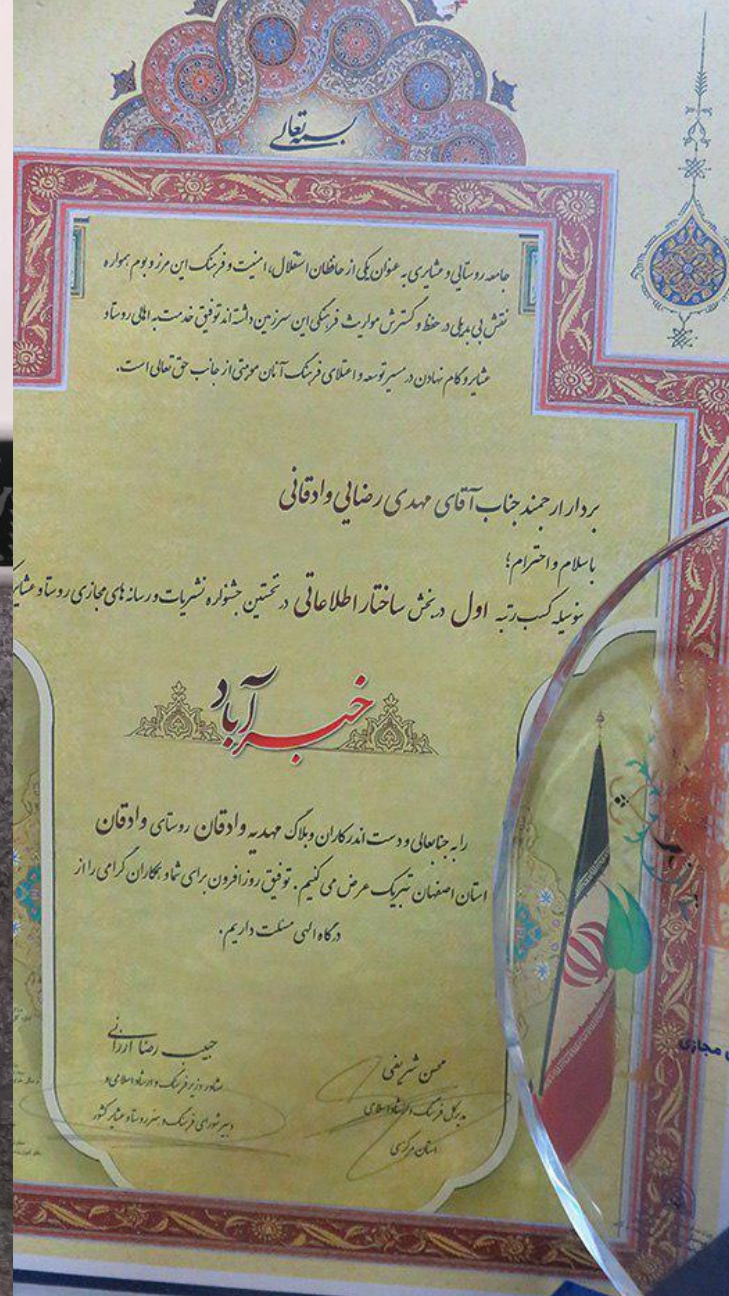 بسمه تعالی
جامعه روستایی و عشایری به عنوان یکی از حافظان استقلال، امنیت و فرهنگ این مرز و بوم همواره
نقش بی بدیلی در حفظ و گسترش مواریث فرهنگی این سرزمین داشته اند توفیق خدمت به اهالی روستا و
عشایر و گام نهادن در مسیر توسعه و اعتلای فرهنگ آنان موهبتی از جانب حق تعالی است.
بردار ارجمند جناب آقای مهدی رضایی وادقانی
با سلام و احترام؛
بدینوسیله کسب رتبه اول در بخش ساختار اطلاعاتی در نخستین جشنواره نشریات و رسانه های مجازی روستا و عشایر
خبر آباد
را به جنابعالی و دست اندرکاران وبلاگ مهدیه وادقان روستای وادقان
استان اصفهان تبریک عرض می کنیم. توفیق روز افزون برای شما و همکاران گرامی را از
درگاه الهی مسئلت داریم.
محسن شریفی
مدیرکل فرهنگ و ارشاد اسلامی
استان مرکزی
حبیب رضا ارزانی
مشاور وزیر فرهنگ و ارشاد اسلامی و
دبیر شورای فرهنگ و هنر روستا و عشایر کشور
مجازی